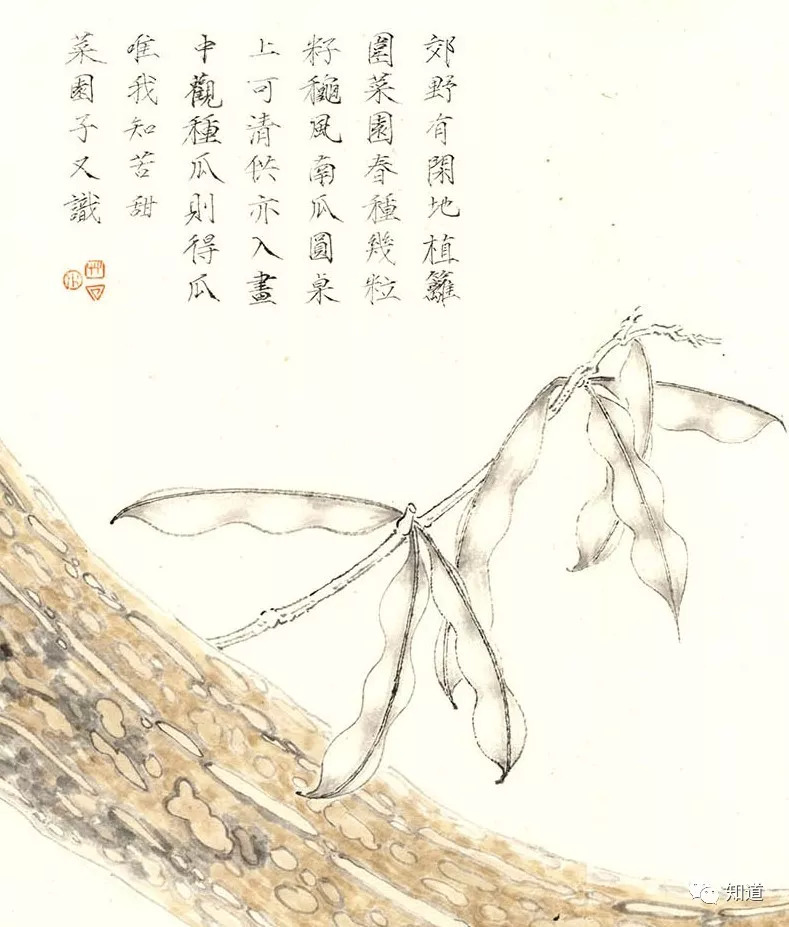 郊野有閑地植籬
圍菜園春種幾粒
籽秋風南瓜圓桌
上可清供亦入畫
中觀種瓜則得瓜
唯我知苦甜
菜園子又識
知道